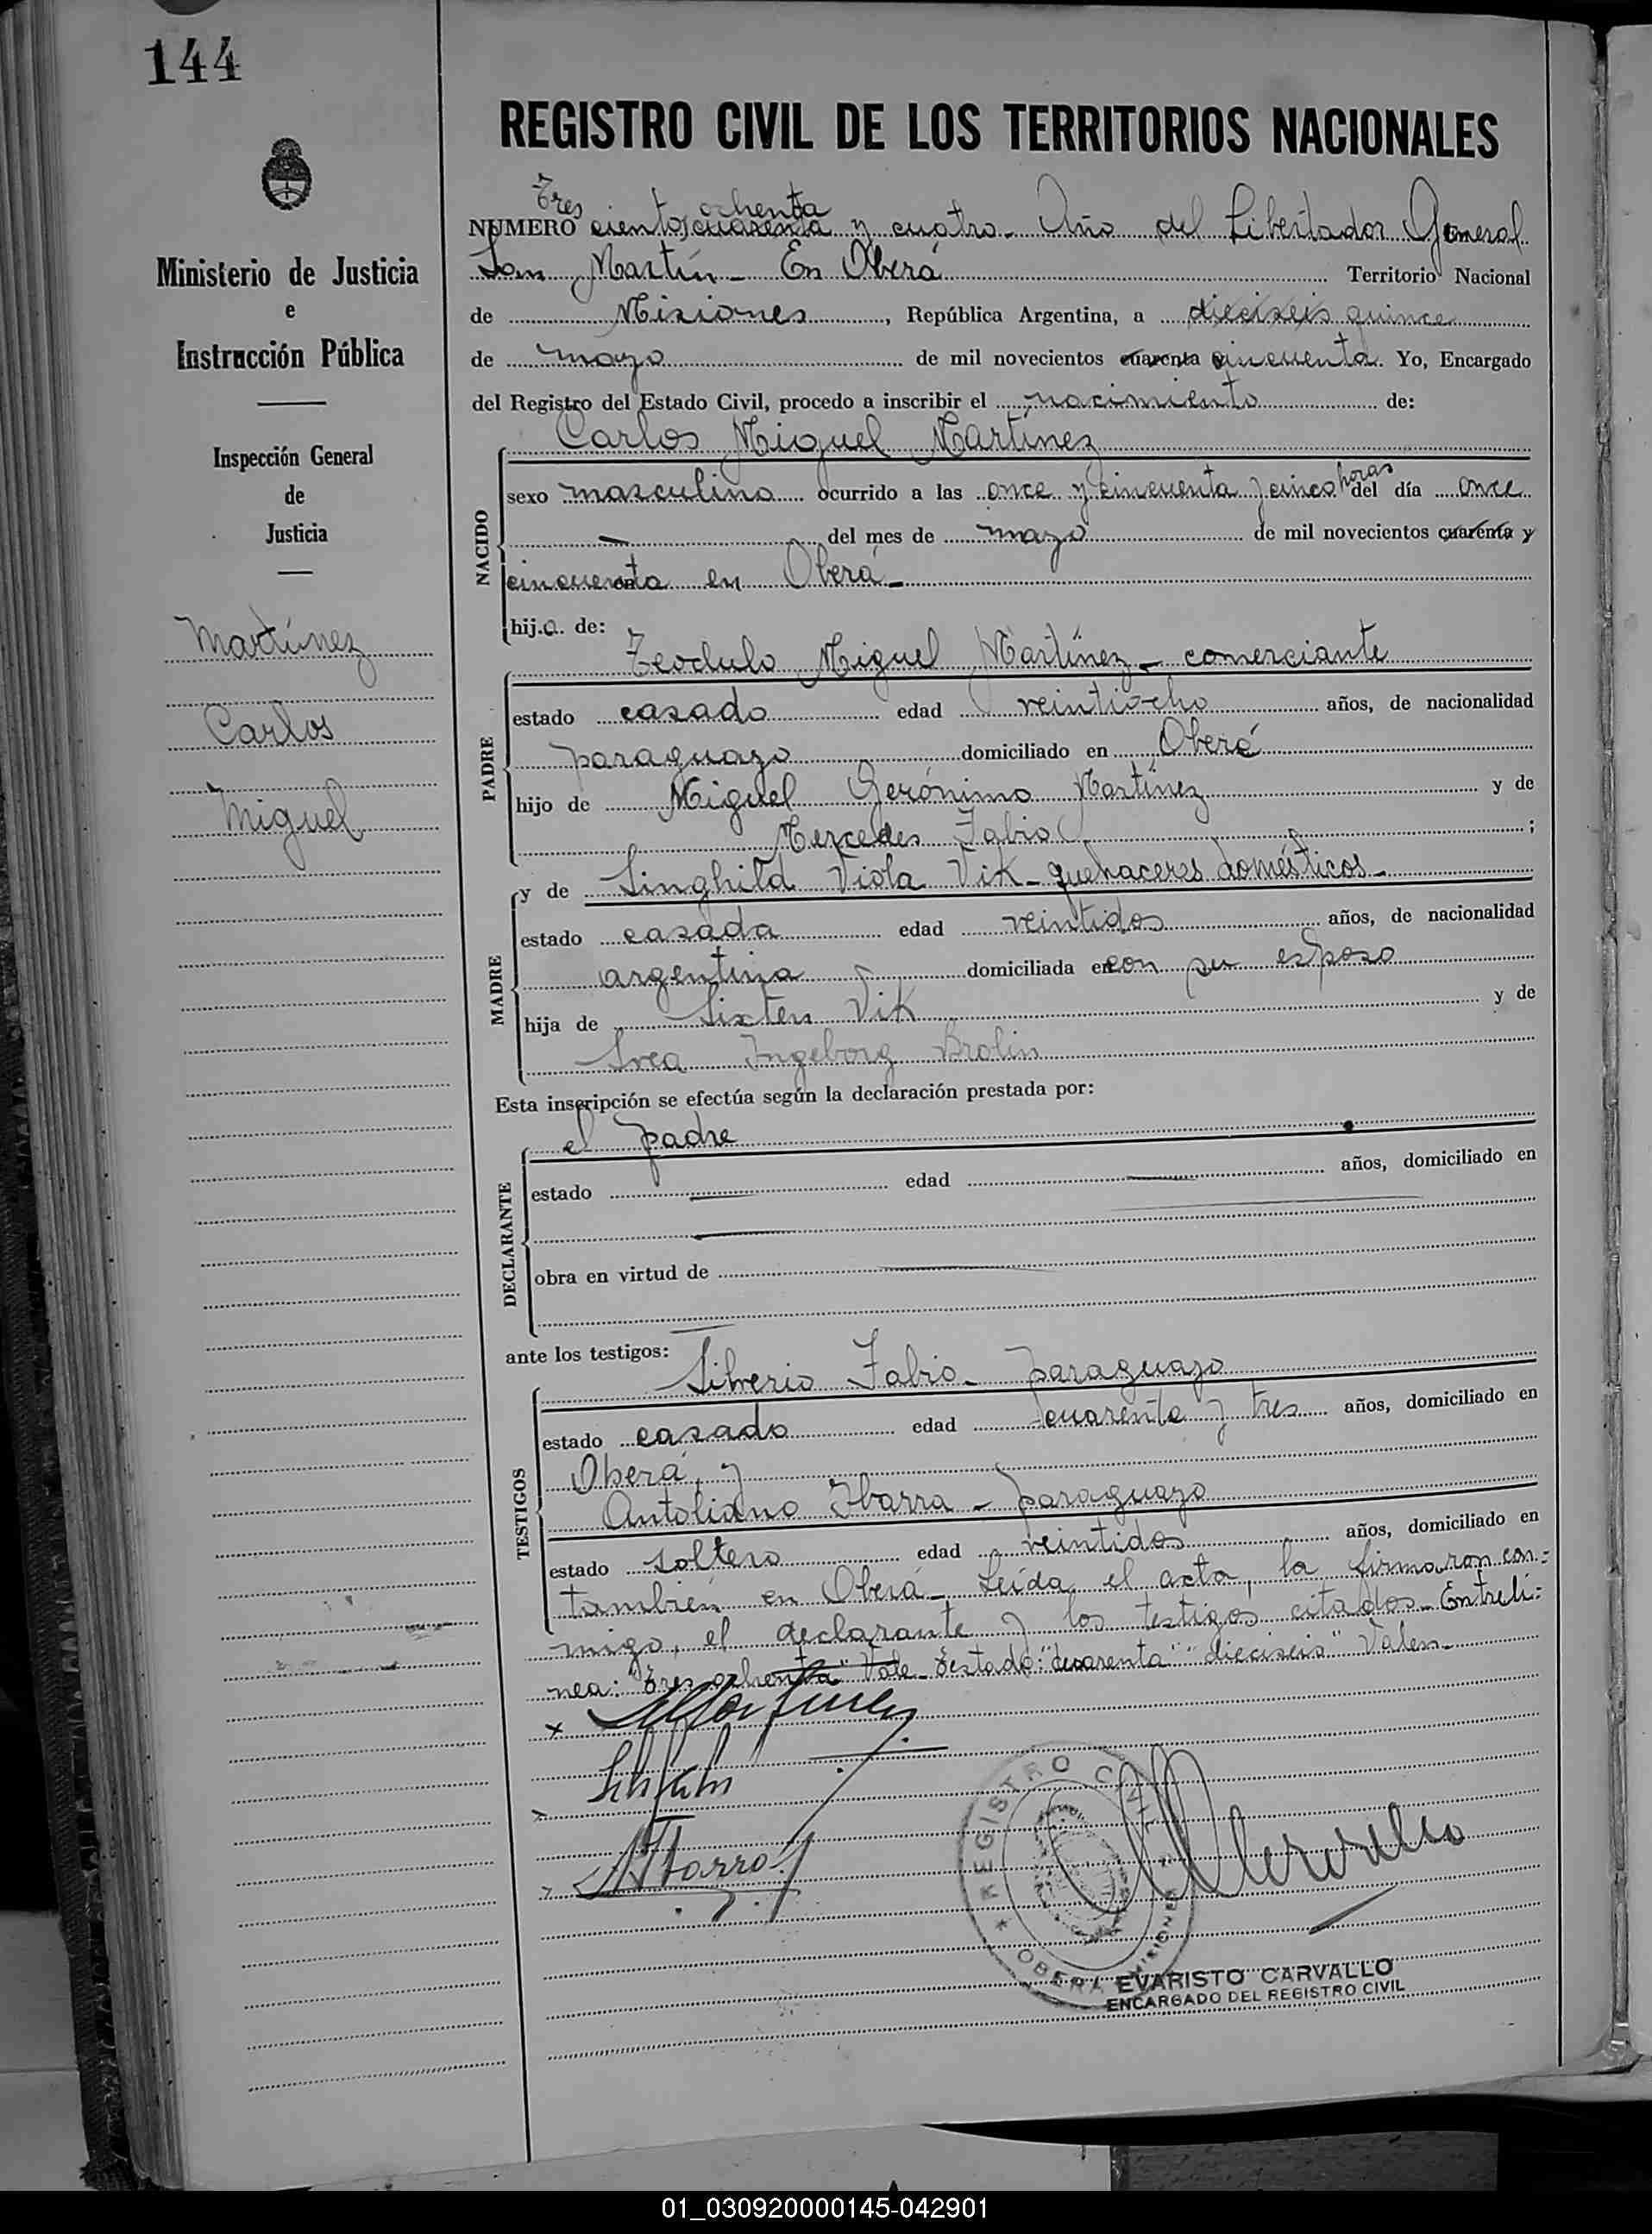 144
REGISTRO CIVIL DE LOS TERRITORIOS NACIONALES
Ministerio de Justicia
e
Instrucción Pública
Inspección General
de
Justicia
Martínez
Carlos
Miguel
Tres ochenta
NUMERO cientos cuarenta y cuatro. Año del Libertador General
San Martín - En Oberá Territorio Nacional
de Misiones, República Argentina, a dieciseis quince
de mayo de mil novecientos cuarenta cincuenta. Yo, Encargado
del Registro del Estado Civil, procedo a inscribir el nacimiento de:
NACIDO
Carlos Miguel Martínez
sexo masculino ocurrido a las once y cincuenta y cinco horas del día once
del mes de mayo de mil novecientos cuarenta y
cincuenta en Oberá -
hijo de:
PADRE
Teodulo Miguel Martínez - comerciante
estado casado edad veintiocho años, de nacionalidad
paraguayo domiciliado en Oberá
hijo de Miguel Gerónimo Martínez y de
Mercedes Fabio ;
MADRE
y de Singhild Viola Vik - quehaceres domésticos -
estado casada edad veintidos años, de nacionalidad
argentina domiciliada en con su esposo
hija de Sixten Vik y de
Svea Ingeborg Brolin
Esta inscripción se efectúa según la declaración prestada por:
DECLARANTE
el padre
estado edad años, domiciliado en
obra en virtud de
ante los testigos:
TESTIGOS
Silverio Fabio - paraguayo
estado casado edad cuarenta y tres años, domiciliado en
Oberá, y
Antoliano Ibarra - paraguayo
estado soltero edad veintidos años, domiciliado en
también en Oberá - Leída el acta, la firmaron con=
migo, el declarante y los testigos citados - Entreli=
nea: "tres ochenta" Vale - Testado: "cuarenta" "dieciseis" Valen -
REGISTRO CIVIL
OBERA MISIONES
EVARISTO CARVALLO
ENCARGADO DEL REGISTRO CIVIL
01_030920000145-042901